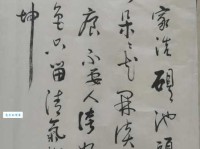 家洗硯池頭
朵花開淡
痕不要人誇
色只留清氣
坤